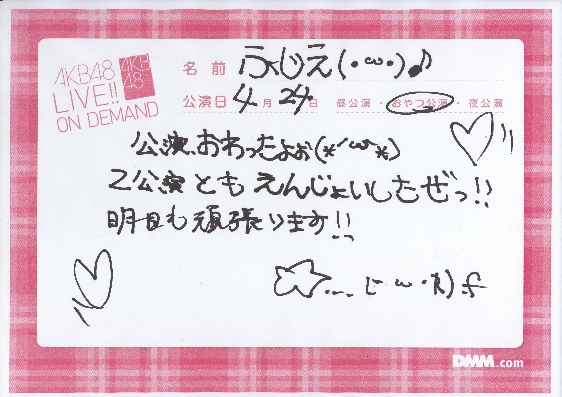 AKB48
LIVE!!
ON DEMAND
AKB
48
名前 ふじえ(・ω・)♪
公演日 4月24日 昼公演・おやつ公演・夜公演
公演、おわったよぉ(*´ω`*)
2公演ともえんじょいしたぜっ!!
明日も頑張ります!!
DMM.com